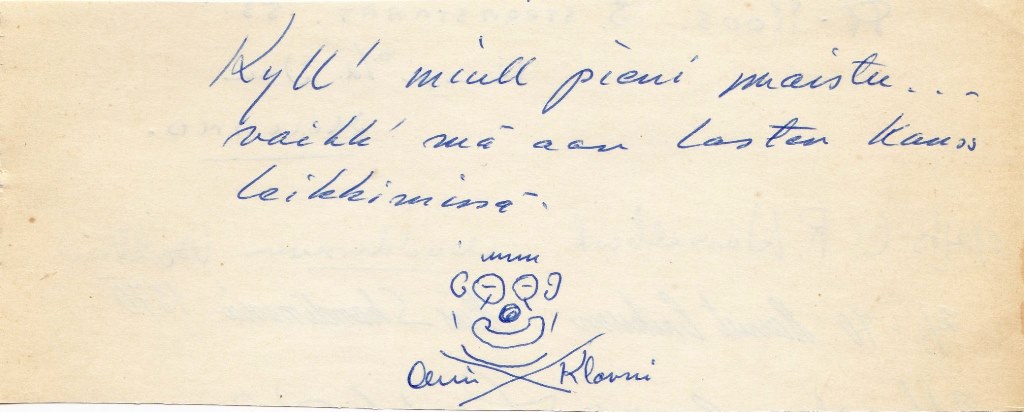 Kyll' miull pieni maistu...
vaikk' mä oon lasten kanss
leikkimissä.
Onni Klovni